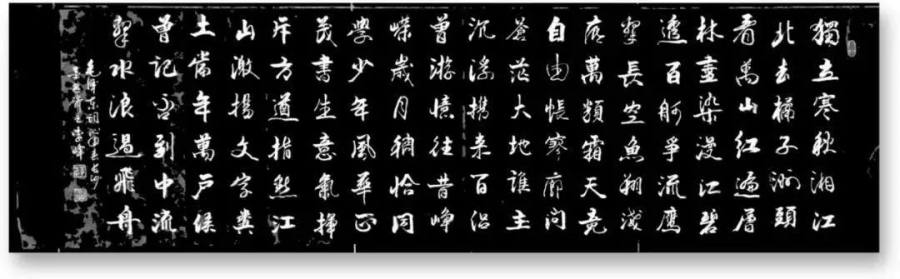 獨立寒秋湘江
北去橘子洲頭
看萬山红遍層
林盡染漫江碧
透百舸爭流鷹
擊長空魚翔淺
底萬類霜天竞
自由悵寥廓问
蒼茫大地誰主
沉浮携来百侣
曾游憶往昔峥
嵘歲月稠恰同
學少年風華正
茂書生意氣揮
斥方遒指點江
山激揚文字粪
土當年萬户侯
曾記否到中流
擊水浪遏飛舟
毛澤東詞沁园春長沙